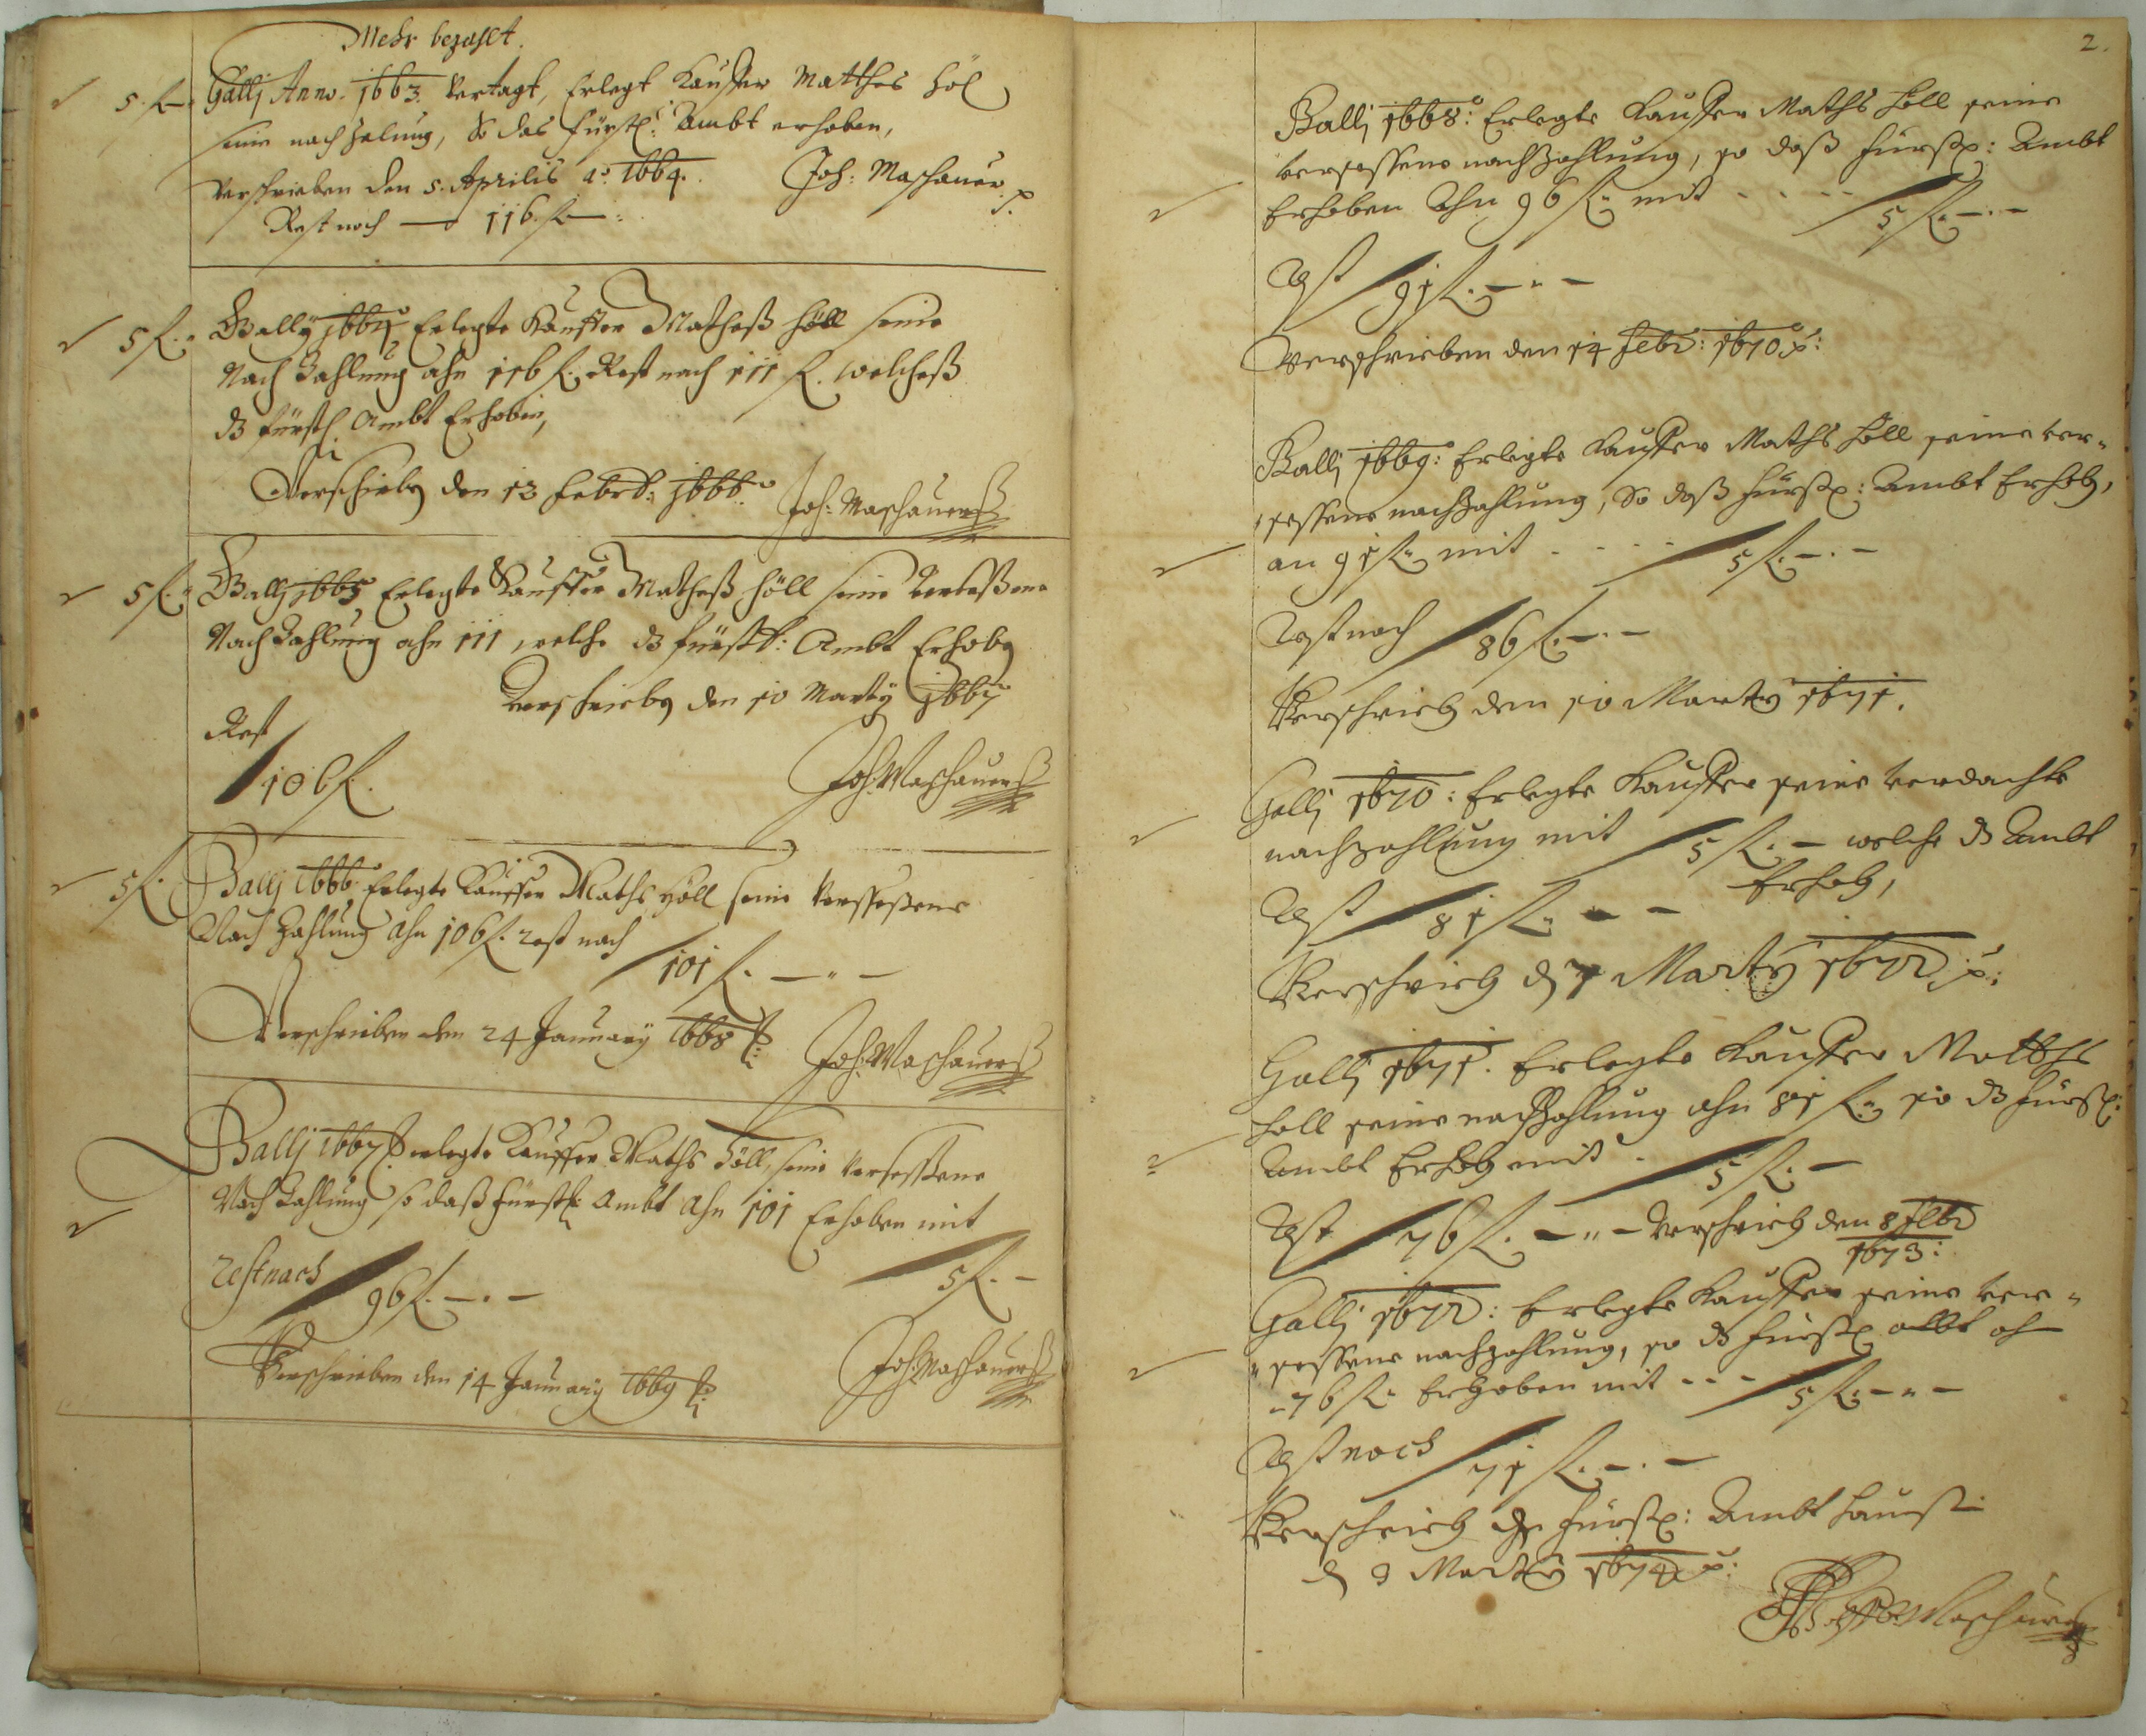 Mehr bezahlt.
5 f. — Galli Anno. 1663. Vertagt, Erlegt Kauffer Matthes Höl
seine nach Zalung, So das fürstl: Ambt erhoben,
Verschrieben den 5. Aprilis ao. 1664. Joh: Maschauer
Rest noch — 116 f. —
5 f. Gally 1664 Erlegte Kauffer Matheß Höll seine
Nach Zahlung ahn 116 f. Rest noch 111 f. welcheß
dz fürstl. Ambt Erhoben,
Verschrieben den 13 Febr: 1666. Joh: Maschauer
5 f. Gally 1665 Erlegte Kauffer Matheß Höll seine Verseßene
Nach Zahlung ahn 111, welche dz fürstl: Ambt Erhoben
Verschrieben den 10 Marty 1667
Rest
106 f. Joh: Maschauer
5 f. Galli 1666 Erlegte Kauffer Maths Höll seine Versessene
Nach Zahlung ahn 106 f. rest noch
101 f. — " —
Verschrieben den 24 January 1668 Joh: Maschauer
Galli 1667 erlegte Kauffer Maths Höll, seine Versessene
Nach Zahlung so daß fürstl: Ambt ahn 101 Erhoben mit
5 f. —
restnach 96 f. — . —
Verschrieben den 14 January 1669 Joh: Maschauer
2.
Galli 1668: Erlegte Kauffer Maths Höll seine
versessene nachzahlung, so daß fürstl: Ambt
Erhoben Ahn 96 f. mit - - - - 5 f. — . —
Rest 91 f. — " —
Verschrieben den 14 Febr: 1670
Galli 1669: Erlegte Kauffer Maths Höll seine ver-
sessene nachzahlung, So daß fürstl: Ambt Erhoben,
an 91 f. mit - - - - 5 f. — . —
Rest noch 86 f. — . —
Verschrieben den 10 Marty 1671.
Galli 1670: Erlegte Kauffer seine verdachte
nachzahlung mit 5 f. — welche dz Ambt
Erhoben,
Rest 81 f. — —
Verschrieben den 7 Marty 1672
Galli 1671. Erlegte Kauffer Matths
Höll seine nachzahlung ahn 81 f. so dz fürstl:
Ambt Erhoben mit - 5 f. —
Rest 76 f. — " — Verschrieben den 8 Febr
1673:
Galli 1672: Erlegte Kauffer seine ver-
sessene nachzahlung, so dz fürstl Ambt ah
76 f. Erhoben mit - - - 5 f. — " —
Rest noch 71 f. — . —
Verschrieben fürstl: Ambt Hauß
d 3 Marty 1674
Maschauer